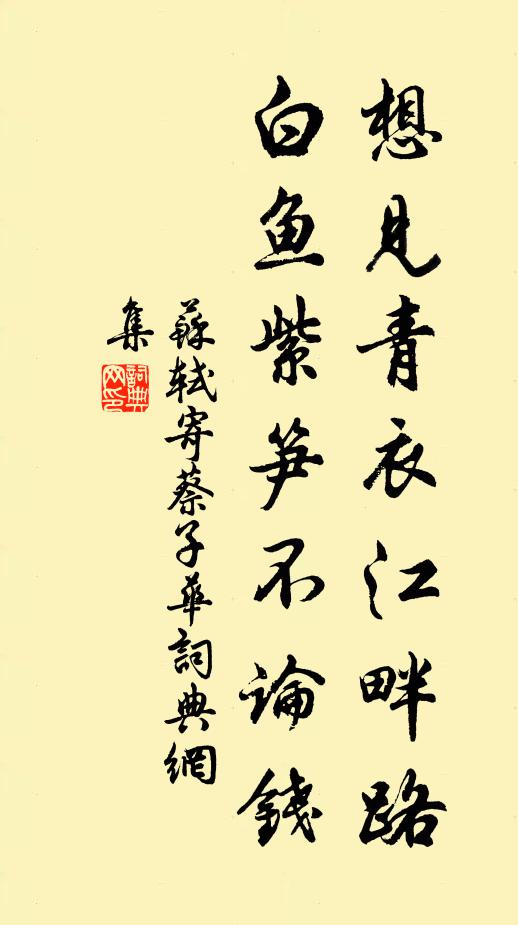 想見青衣江畔路
白魚紫笋不論錢
蘇軾寄蔡子華詞典網
集
詞典
网印